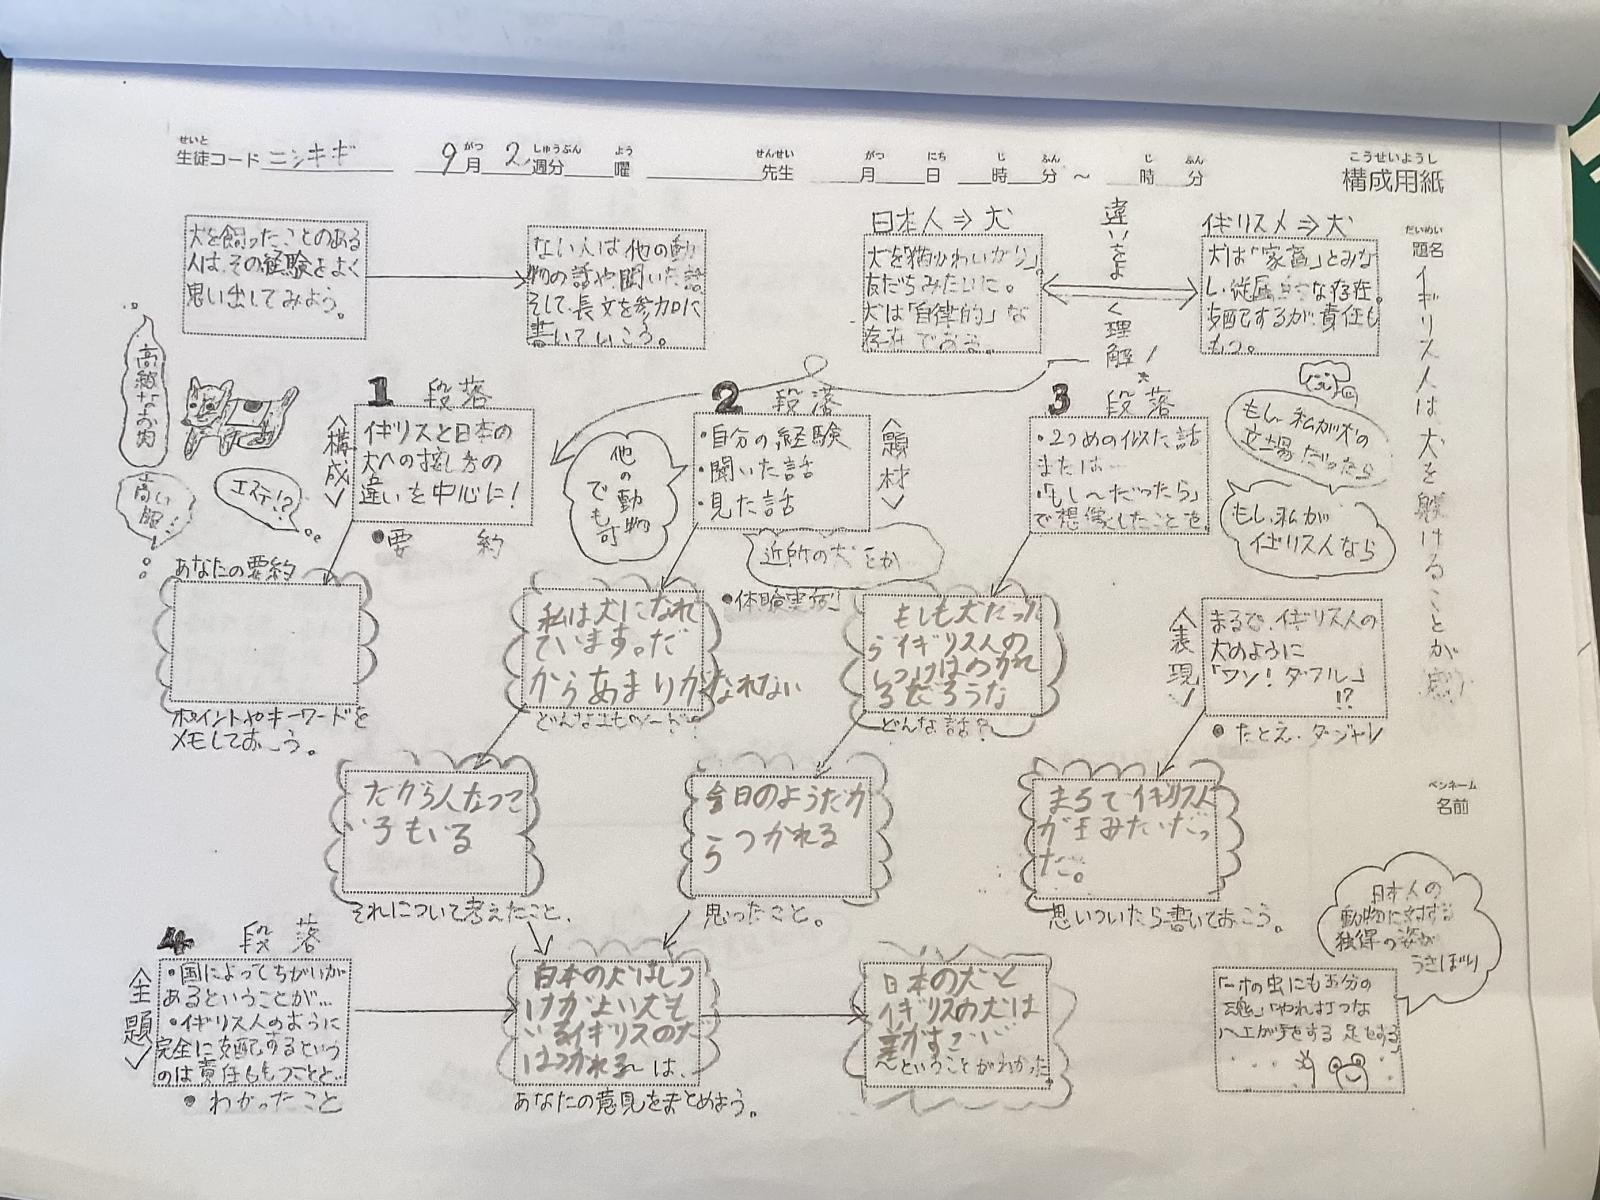 せいと
生徒コード ニシキギ
がつ しゅうぶん よう
9月 2週分 曜
せんせい
先生
がつ にち じ ふん じ ふん
月 日 時 分 ～ 時 分
こうせいようし
構成用紙
だいめい
題名
イギリス人は犬を躾けることが
ペンネーム
名前
犬を飼ったことのある
人は、その経験をよく
思い出してみよう。
ない人は他の動
物の話や聞いた話
そして、長文を参加に
書いていこう。
日本人⇒犬
犬を「猫かわいがり」。
友だちみたいに。
犬は「自律的」な
存在
違いをよく理解！
イギリス人⇒犬
犬は「家畜」とみな
し、従属 な存在。
支配するが、責任も
もつ。
高級なお肉
高い服！
エステ!?
1 段落
＜構成＞
イギリスと日本の
犬への接し方の
違いを中心に！
●要約
他の動物でも可
2 段落
＜題材＞
・自分の経験
・聞いた話
・見た話
近所の犬とか…
●体験実例
3 段落
・2つめの似た話
または…
・「もし～だったら」
で想像したことを。
もし、私が犬の
立場だったら
もし、私が
イギリス人なら
あなたの要約
ポイントやキーワードを
メモしておこう。
私は犬になれ
ています。だ
からあまりかなれない
もしも犬だった
らイギリス人の
しつけはつかれ
るだろうな
どんな話？
＜表現＞
まるで、イギリス人の
犬のように
「ワン！ダフル」
!?
●たとえ・ダジャレ
だから人なつて
い子もいる
それについて考えたこと、
今日のようだか
らつかれる
思ったこと。
まるでイギリス人
が王みたいだっ
た。
思いついたら書いておこう。
4 段落
＜主題＞
・国によってちがいが
あるということが…
・イギリス人のように
完全に支配するという
のは責任ももつことと…
●わかったこと
日本の犬はしつ
けがよい犬も
いるイギリスの犬
はつかれる～は、
あなたの意見をまとめよう。
日本の犬と
イギリスの犬は
差がすごい
～ということがわかった。
日本人の
動物に対する
独得の姿が
うきぼり
「一寸の虫にも五分の
魂」「やれ打つな
ハエが手をする 足をする」